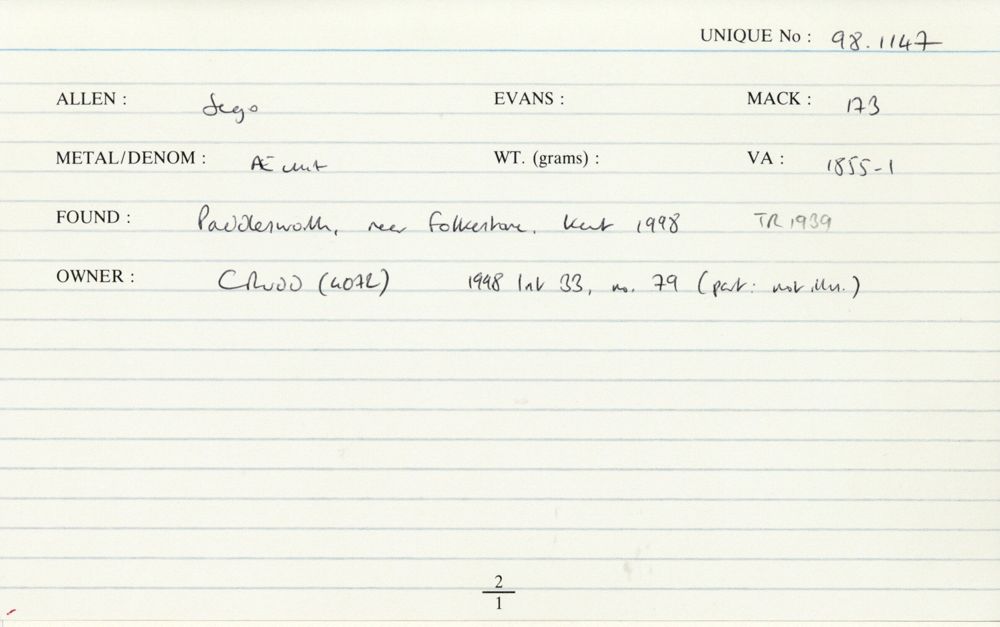 UNIQUE No : 98.1147
ALLEN : Sego EVANS : MACK : 173
METAL/DENOM : Æ unit WT. (grams) : VA : 1855-1
FOUND : Paddlesworth, near Folkestone, Kent 1998 TR 1939
OWNER : (407L) 1998 Int 33, no. 79 (part: not illn.)
2
1